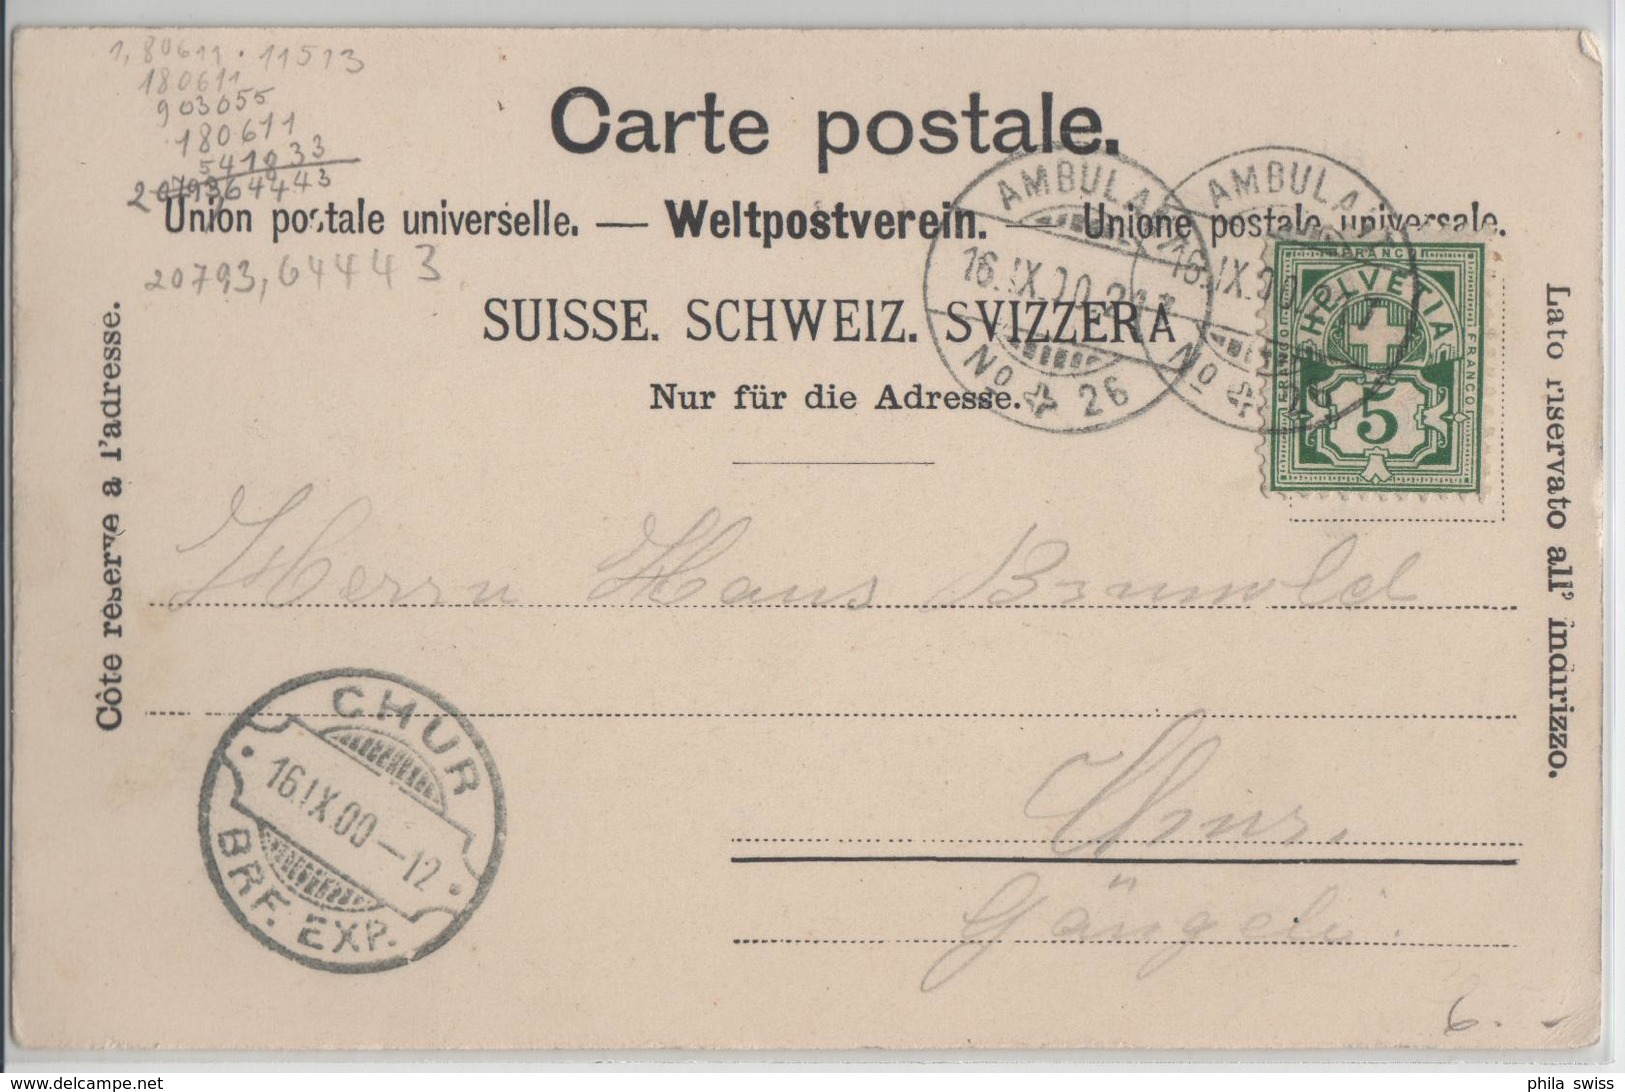 1,80611 . 11513
180611
903055
180611
541833
20793,64443
Carte postale.
Union postale universelle. — Weltpostverein. — Unione postale universale.
SUISSE. SCHWEIZ. SVIZZERA
Nur für die Adresse.
Côté réservé a l'adresse.
Lato riservato all' indirizzo.
AMBULANT
16.IX.00
No 26
AMBULANT
16.IX.00
No 26
FRANCO
HELVETIA
FRANCO
FRANCO
5
Herrn Hans Brunold
Chur.
Gängeli.
CHUR
16.IX.00—12
BRF. EXP.
6. -
phila swiss